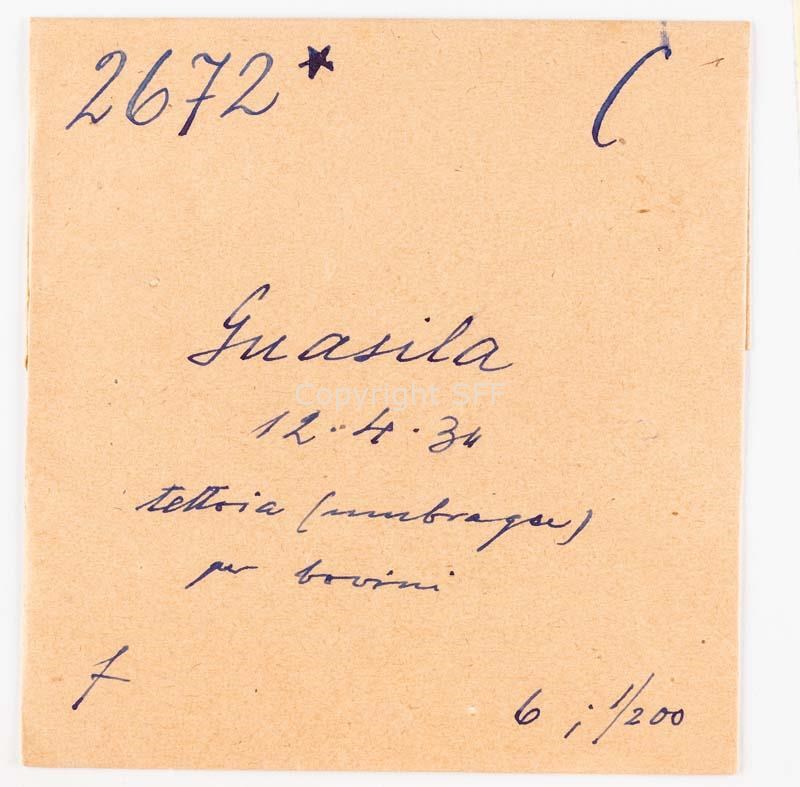 2672* C
Guasila
Copyright SFF
12.4.34
tettoia (umbragu)
per bovini
f
6 ; 1/200